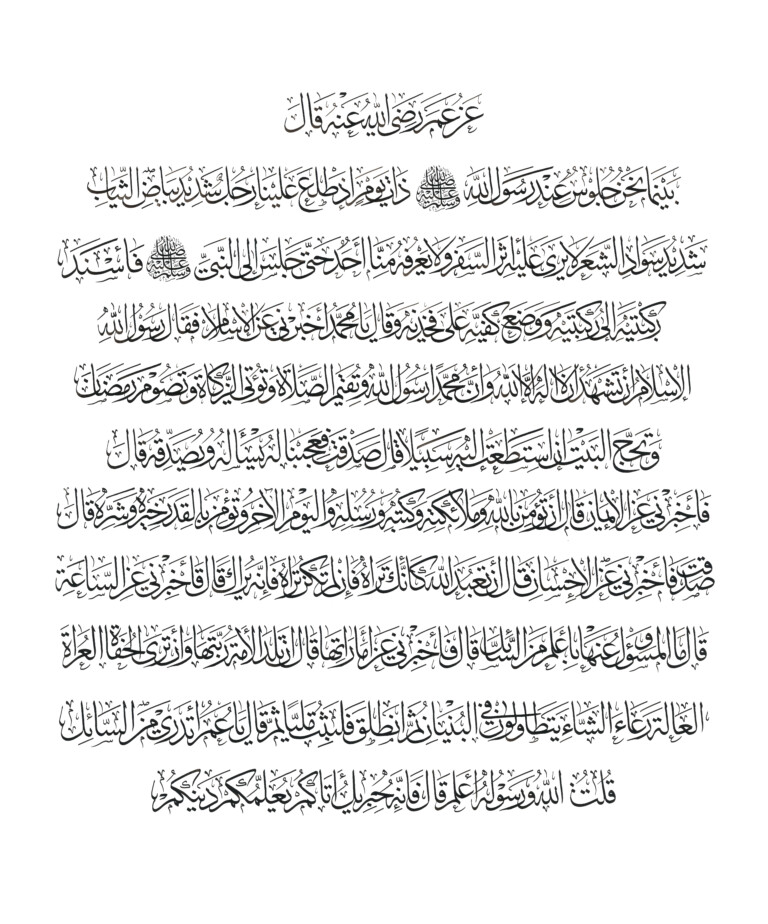 عَنْ عُمَرَ رَضِيَ اللهُ عَنْهُ قَالَ
بَيْنَمَا نَحْنُ جُلُوسٌ عِنْدَ رَسُولِ اللهِ ﷺ ذَاتَ يَوْمٍ إِذْ طَلَعَ عَلَيْنَا رَجُلٌ شَدِيدُ بَيَاضِ الثِّيَابِ
شَدِيدُ سَوَادِ الشَّعْرِ لَا يُرَى عَلَيْهِ أَثَرُ السَّفَرِ وَلَا يَعْرِفُهُ مِنَّا أَحَدٌ حَتَّى جَلَسَ إِلَى النَّبِيِّ ﷺ فَأَسْنَدَ
رُكْبَتَيْهِ إِلَى رُكْبَتَيْهِ وَوَضَعَ كَفَّيْهِ عَلَى فَخِذَيْهِ وَقَالَ يَا مُحَمَّدُ أَخْبِرْنِي عَنِ الْإِسْلَامِ فَقَالَ رَسُولُ اللهِ
الْإِسْلَامُ أَنْ تَشْهَدَ أَنْ لَا إِلَهَ إِلَّا اللهُ وَأَنَّ مُحَمَّدًا رَسُولُ اللهِ وَتُقِيمَ الصَّلَاةَ وَتُؤْتِيَ الزَّكَاةَ وَتَصُومَ رَمَضَانَ
وَتَحُجَّ الْبَيْتَ إِنِ اسْتَطَعْتَ إِلَيْهِ سَبِيلًا قَالَ صَدَقْتَ فَعَجِبْنَا لَهُ يَسْأَلُهُ وَيُصَدِّقُهُ قَالَ
فَأَخْبِرْنِي عَنِ الْإِيمَانِ قَالَ أَنْ تُؤْمِنَ بِاللهِ وَمَلَائِكَتِهِ وَكُتُبِهِ وَرُسُلِهِ وَالْيَوْمِ الْآخِرِ وَتُؤْمِنَ بِالْقَدَرِ خَيْرِهِ وَشَرِّهِ قَالَ
صَدَقْتَ فَأَخْبِرْنِي عَنِ الْإِحْسَانِ قَالَ أَنْ تَعْبُدَ اللهَ كَأَنَّكَ تَرَاهُ فَإِنْ لَمْ تَكُنْ تَرَاهُ فَإِنَّهُ يَرَاكَ قَالَ فَأَخْبِرْنِي عَنِ السَّاعَةِ
قَالَ مَا الْمَسْؤُولُ عَنْهَا بِأَعْلَمَ مِنَ السَّائِلِ قَالَ فَأَخْبِرْنِي عَنْ أَمَارَاتِهَا قَالَ أَنْ تَلِدَ الْأَمَةُ رَبَّتَهَا وَأَنْ تَرَى الْحُفَاةَ الْعُرَاةَ
الْعَالَةَ رِعَاءَ الشَّاءِ يَتَطَاوَلُونَ فِي الْبُنْيَانِ ثُمَّ انْطَلَقَ فَلَبِثْتُ مَلِيًّا ثُمَّ قَالَ يَا عُمَرُ أَتَدْرِي مَنِ السَّائِلُ
قُلْتُ اللهُ وَرَسُولُهُ أَعْلَمُ قَالَ فَإِنَّهُ جِبْرِيلُ أَتَاكُمْ يُعَلِّمُكُمْ دِينَكُمْ